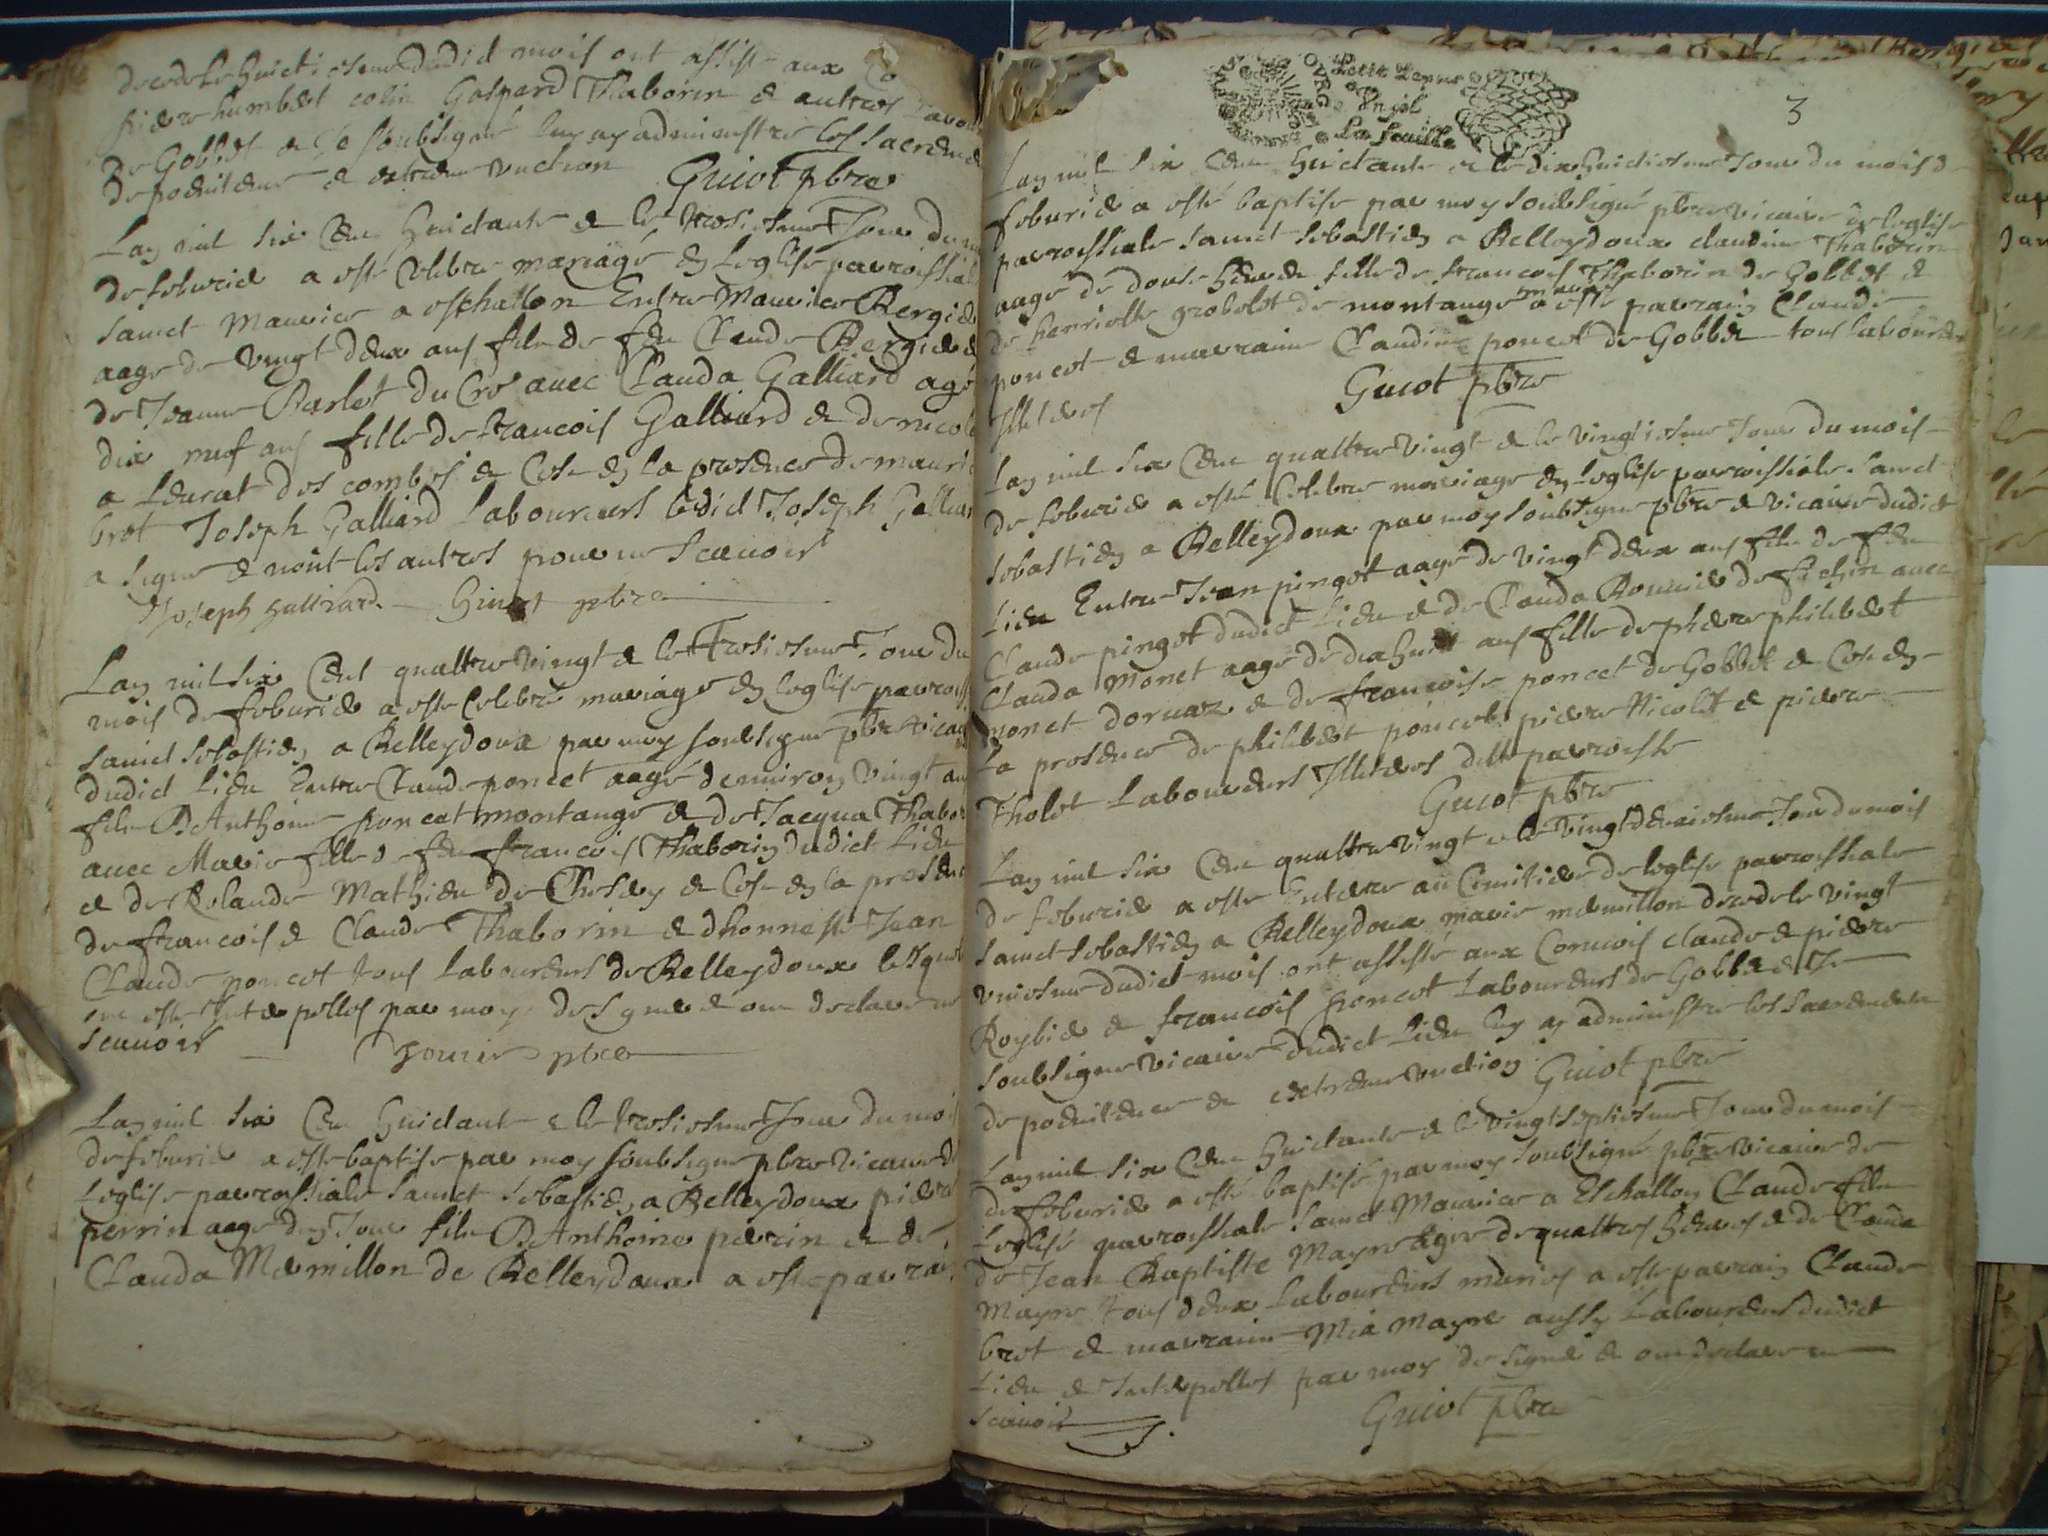 decede le huictiesme dudict mois ont assiste aux
pierre humbert colin Gaspard Thaborin & autres
de Gobbet & Je soubsigné luy ay administre les sacremen
de penitence & extreme unction Guiot pbre
Lan mil six cent huictante & le troisiesme Jour du
de febvrier a esté celebre mariage en leglise parrochial
sainct Maurice a eschallon Entre Maurice Bergier
aage de vingt deux ans fils de feu Claude Bergier
de Jeanne Barlet du Cro avec Clauda Galliard agé
dix neuf ans fille de francois Galliard & de nicole
a Leurat des combes & Ce en la presence de mauri
bret Joseph Galliard Laboureurs ledict Joseph Galliar
a signe & nont les autres pour ne scavoir
Joseph galliard Guiot pbre
Lan mil six cent quattre vingt & le Troisiesme Jour du
mois de febvrier a este Celebré mariage en leglise parroi
sainct sebastien a Belleydoux par moy soubsigne pbre vicai
dudict lieu Entre Claude poncet aagé denviron vingt an
fils D Anthoine poncet montange & de Jacqua Thabor
avec Marie fille de feu francois Thaborin dudict lieu
& de Rolande Mathieu de Choudey & Ce en la presenc
de francois & Claude Thaborin & dhonneste Jean
Claude poncet tous laboureurs de Belleydoux lesquel
ont este Interpelles par moy de signer & ont declare ne
scavoir pbre
Lan mil six cent huictante & le troisiesme Jour du moi
de febvrier a este baptise par moy soubsigne pbre vicaire d
Leglise parrossiale sainct sebastien a Belleydoux pierre
perrin aage dun Jour fils D Anthoine perrin & de
Clauda Mermillon de Belleydoux a este parrai
Petit Papier
Un sol
La feuille
3
Lan mil six cent huictante & le dix huictiesme Jour du mois d
febvrier a esté baptise par moy soubsigné pbre vicaire en leglise
parrossiale sainct sebastien a Belleydoux claudine Thaborin
aage de douse heures fille de francois Thaborin de Gobbet &
de henriette grobelet de montange mariés a esté parrain Claude
poncet & marraine Claudine poncet de Gobbet tous laboureurs
Illeteres Guiot pbre
Lan mil six cent quattre vingt & le vingtiesme Jour du mois
de febvrier a esté Celebre mariage en leglise parroissiale sainct
sebastien a Belleydoux par moy soubsigne pbre & vicaire dudict
lieu Entre Jean pinget aage de vingt deux ans fils de feu
Claude pinget dudict lieu & de Clauda Bouvier de avec
Clauda Monet aage de dix huit ans fille de pierre philibert
monet dornaz & de francoise poncet de Gobbet & Ce en
la presence de philibert poncet pierre Nicolet & pierre
Tholet Laboureurs Illeteres dele parroisse
Guiot pbre
Lan mil six cent quattre vingt & le vingt deuxiesme Jour du mois
de febvrier a este Enterre au Cemitiere de leglise parrossiale
sainct sebastien a Belleydoux marie mermillon decede le vingt
uniesme dudict mois ont assiste aux Convois claude & pierre
Roybier & francois poncet Laboureurs de Gobbet & Je
soubsigne vicaire dudict lieu luy ay administre les sacrements
de penitence & extreme unction Guiot pbre
Lan mil six cent huictante & le vingt septiesme Jour du mois
de febvrier a esté baptisé par moy soubsigné pbre vicaire de
Leglise parrossiale sainct Maurice a Eschallon Claude fils
de Jean Baptiste Mayre agée de quattres heures & de Clauda
Mayre tous deux Laboureurs mariés a este parrain Claude
bret & marraine Mia Mayre aussy Laboureurs dudict
Lieu & Interpelles par moy de signer & ont declare ne
scavoir Guiot pbre